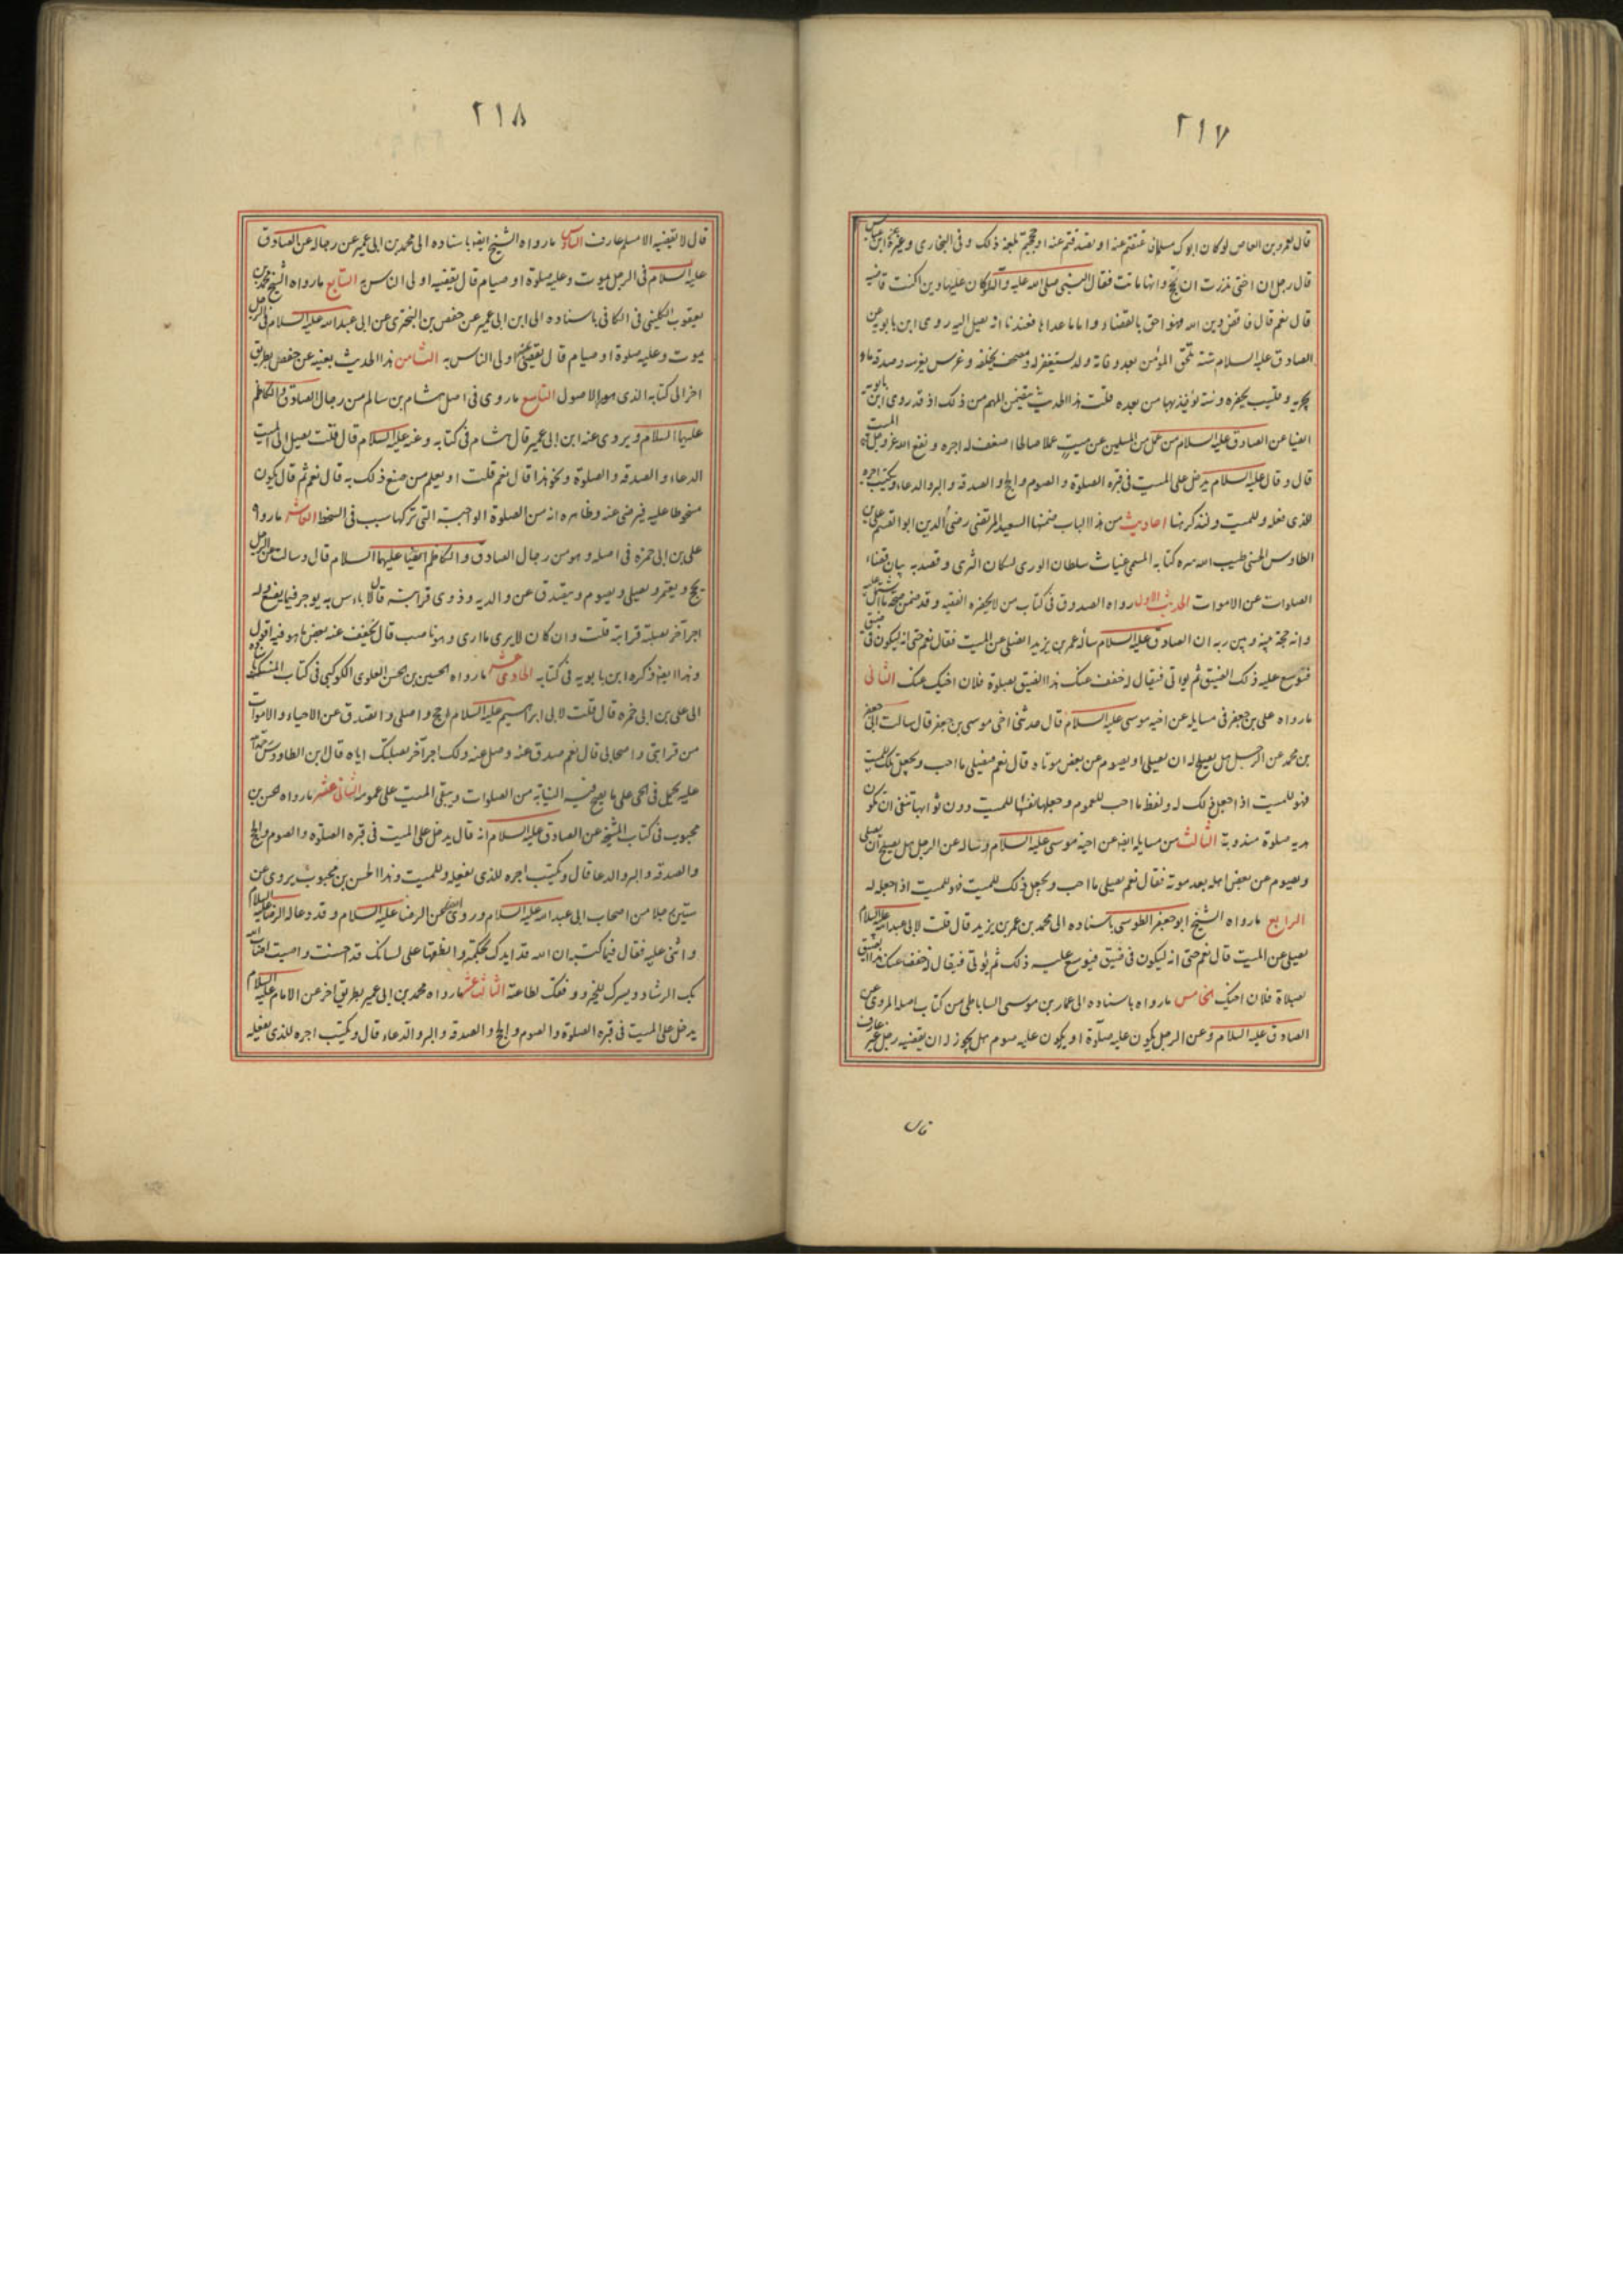 ٢١٧
قال لعمرو بن العاص لو كان ابوك مسلما فاعتقتم عنه او تصدقتم عنه او حججتم بلغه ذلك وفى البخارى وغيره عن ابن عباس
قال رجل ان اختى نذرت ان تحج وانها ماتت فقال النبى صلى الله عليه وآله لو كان عليها دين اكنت قاضيه
قال نعم قال فاقض دين الله فهو احق بالقضاء واما ما عداها فعندنا انه يصل اليه روى ابن بابويه عن
الصادق عليه السلام ستة تلحق المؤمن بعد وفاته ولد يستغفر له ومصحف يخلفه وغرس يغرسه وصدقة ماء
يجريه وقليب يحفره وسنة يؤخذ بها من بعده قلت هذا الحديث يتضمن المهم من ذلك اذ قد روى ابن بابويه
ايضا عن الصادق عليه السلام من عمل من المسلمين عن ميت عملا صالحا اضعف له اجره ونفع الله عز وجل به الميت
قال وقال عليه السلام يدخل على الميت فى قبره الصلوة والصوم والحج والصدقة والبر والدعاء ويكتب اجره
للذى فعله وللميت ولنذكر هنا احاديث من هذا الباب ضمنها السعيد المرتضى رضى الدين ابو القسم على بن
الطاوس الحسنى طيب الله سره كتابه المسمى غياث سلطان الورى لسكان الثرى وقصد به بيان قضاء
الصلوات عن الاموات الحديث الاول رواه الصدوق فى كتاب من لا يحضره الفقيه وقد ضمن صحة ما اشتمل عليه
وانه حجة بينه وبين ربه ان الصادق عليه السلام سأله عمر بن يزيد ايصلى عن الميت فقال نعم حتى انه ليكون فى ضيق
فيوسع عليه ذلك الضيق ثم يؤتى فيقال له خفف عنك هذا الضيق بصلوة فلان اخيك عنك الثانى
ما رواه على بن جعفر فى مسايله عن اخيه موسى عليه السلام قال حدثنى اخى موسى بن جعفر قال سالت ابى جعفر
بن محمد عن الرجل هل يصلح له ان يصلى او يصوم عن بعض موتاه قال نعم فيصلى ما احب ويجعل تلك للميت
فهو للميت اذا جعل ذلك له ولفظ ما احب للعموم وجعلها نفسها للميت دون ثوابها تنفى ان تكون
هدية صلوة مندوبة الثالث من مسايله ايضا عن اخيه موسى عليه السلام وساله عن الرجل هل يصلح ان يصلى
ويصوم عن بعض اهله بعد موته فقال نعم يصلى ما احب ويجعل ذلك للميت فهو للميت اذا جعله له
الرابع ما رواه الشيخ ابو جعفر الطوسى باسناده الى محمد بن عمر بن يزيد قال قلت لابى عبد الله عليه السلام
يصلى عن الميت قال نعم حتى انه ليكون فى ضيق فيوسع عليه ذلك ثم يؤتى فيقال له خفف عنك هذا الضيق
بصلاة فلان اخيك الخامس ما رواه باسناده الى عمار بن موسى الساباطى من كتاب اصله المروى عن
الصادق عليه السلام وعن الرجل يكون عليه صلوة او يكون عليه صوم هل يجوز له ان يقضيه رجل غير عارف
قال
٢١٨
قال لا يقضيه الا مسلم عارف السادس ما رواه الشيخ ايضا باسناده الى محمد بن ابى عمير عن رجاله عن الصادق
عليه السلام فى الرجل يموت وعليه صلوة او صيام قال يقضيه اولى الناس به السابع ما رواه الشيخ محمد بن
يعقوب الكلينى فى الكافى باسناده الى ابن ابى عمير عن حفص بن البخترى عن ابى عبد الله عليه السلام فى الرجل
يموت وعليه صلوة او صيام قال يقضى عنه اولى الناس به الثامن هذا الحديث بعينه عن حفص بطريق
اخر الى كتابه الذى هو من الاصول التاسع ما روى فى اصل هشام بن سالم من رجال الصادق والكاظم
عليهما السلام ويروى عنه ابن ابى عمير قال هشام فى كتابه وعنه عليه السلام قال قلت يصل الى الميت
الدعاء والصدقة والصلوة ونحو هذا قال نعم قلت او يعلم من صنع ذلك به قال نعم ثم قال يكون
مسخوطا عليه فيرضى عنه وظاهره انه من الصلوة الواجبة التى تركها سبب فى السخط العاشر ما رواه
على بن ابى حمزه فى اصله وهو من رجال الصادق والكاظم ايضا عليهما السلام قال وسالت عن الرجل
يحج ويعتمر ويصلى ويصوم ويتصدق عن والديه وذوى قرابته قال لا باس به يوجر فيما يصنع وله
اجر آخر بصلته قرابته قلت وان كان لا يرى ما ارى وهو ناصب قال يخفف عنه بعض ما هو فيه اقول
وهذا ايضا ذكره ابن بابويه فى كتابه الحادى عشر ما رواه الحسين بن الحسن العلوى الكوكبى فى كتاب المنسك باسناده
الى على بن ابى حمزه قال قلت لابى ابراهيم عليه السلام احج واصلى واتصدق عن الاحياء والاموات
من قرابتى واصحابى قال نعم صدق عنه وصل عنه ولك اجر آخر بصلتك اياه قال ابن الطاووس رحمة الله
عليه يحمل فى الحى على ما يصح فيه النيابة من الصلوات ويبقى الميت على عمومه الثانى عشر ما رواه الحسن بن
محبوب فى كتاب المشيخة عن الصادق عليه السلام انه قال يدخل على الميت فى قبره الصلوة والصوم والحج
والصدقة والبر والدعا قال ويكتب اجره للذى يفعله وللميت وهذا الحسن بن محبوب يروى عن
ستين رجلا من اصحاب ابى عبد الله عليه السلام وروى ايضا عن الرضا عليه السلام وقد دعا له الرضا عليه السلام
واثنى عليه فقال فيما كتبه ان الله قد ايدك بحكمة وانطقها على لسانك قد احسنت واصبت اصاب الله
بك الرشاد ويسرك للخير ووفقك لطاعته الثالث عشر ما رواه محمد بن ابى عمير بطريق اخر عن الامام عليه السلام
يدخل على الميت فى قبره الصلوة والصوم والحج والصدقة والبر والدعاء قال ويكتب اجره للذى يفعله